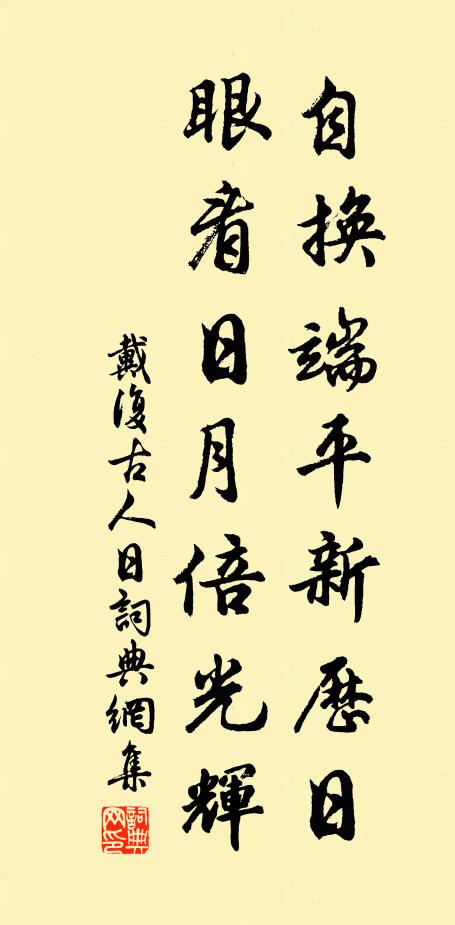 自換端平新歷日
眼看日月倍光輝
戴復古人日詞典網集
詞典網印